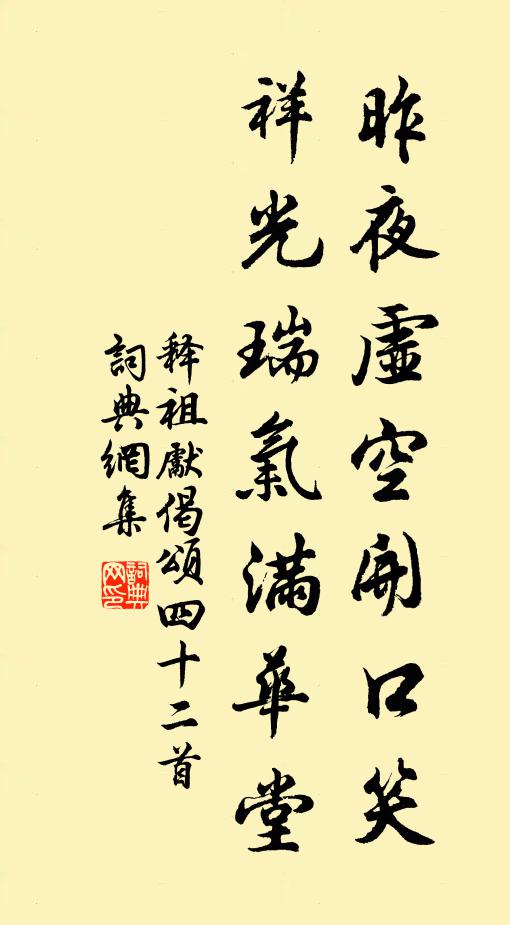 昨夜虛空開口笑
祥光瑞氣滿華堂
释祖獻偈頌四十二首
詞典網集
詞典网印